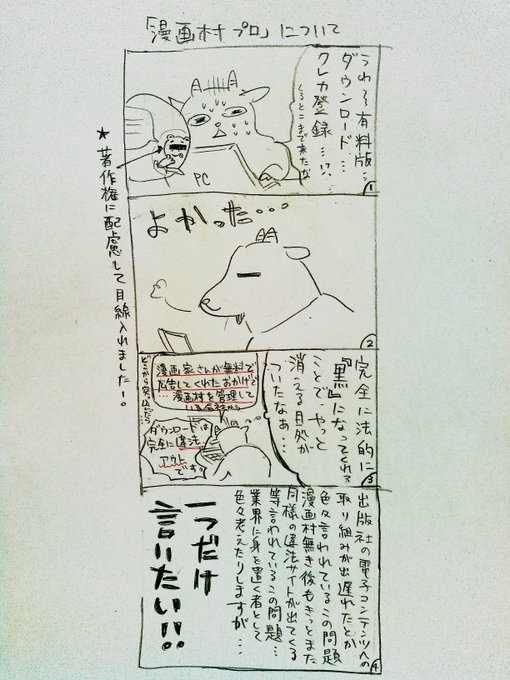 「漫画村プロ」について
うわぁ有料版…
ダウンロード…
クレカ登録…!?
くるとこまで来たか
PC
1
★著作権に配慮して目線入れました!。
よかった…
2
完全に法的に
『黒』になってくれる
ことで やっと
消える目処が
ついたなぁ…
漫画家さんが無料で
広告してくれたおかげで
…漫画村を管理して
いる会社
ダウンロードは
完全に違法
アウト
です。
どこから突っ込んだら…
3
出版社の電子コンテンツへの
取り組みが出遅れたとか
色々言われているこの問題
漫画村無き後もきっとまた
同様の違法サイトが出てくる
等言われているこの問題…
業界に身を置く者として
色々考えたりしますが…
一つだけ
言いたい!!
4